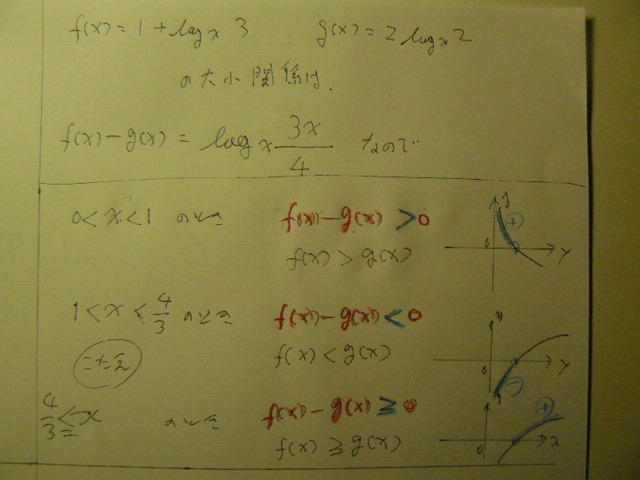 f(x) = 1 + log x 3 g(x) = 2 log x 2
の大小関係は.
f(x) - g(x) = log x 3x/4 なので…
0 < x < 1 のとき f(x) - g(x) > 0
f(x) > g(x)
1 < x < 4/3 のとき f(x) - g(x) < 0
こたえ f(x) < g(x)
4/3 ≦ x のとき f(x) - g(x) ≧ 0
f(x) ≧ g(x)